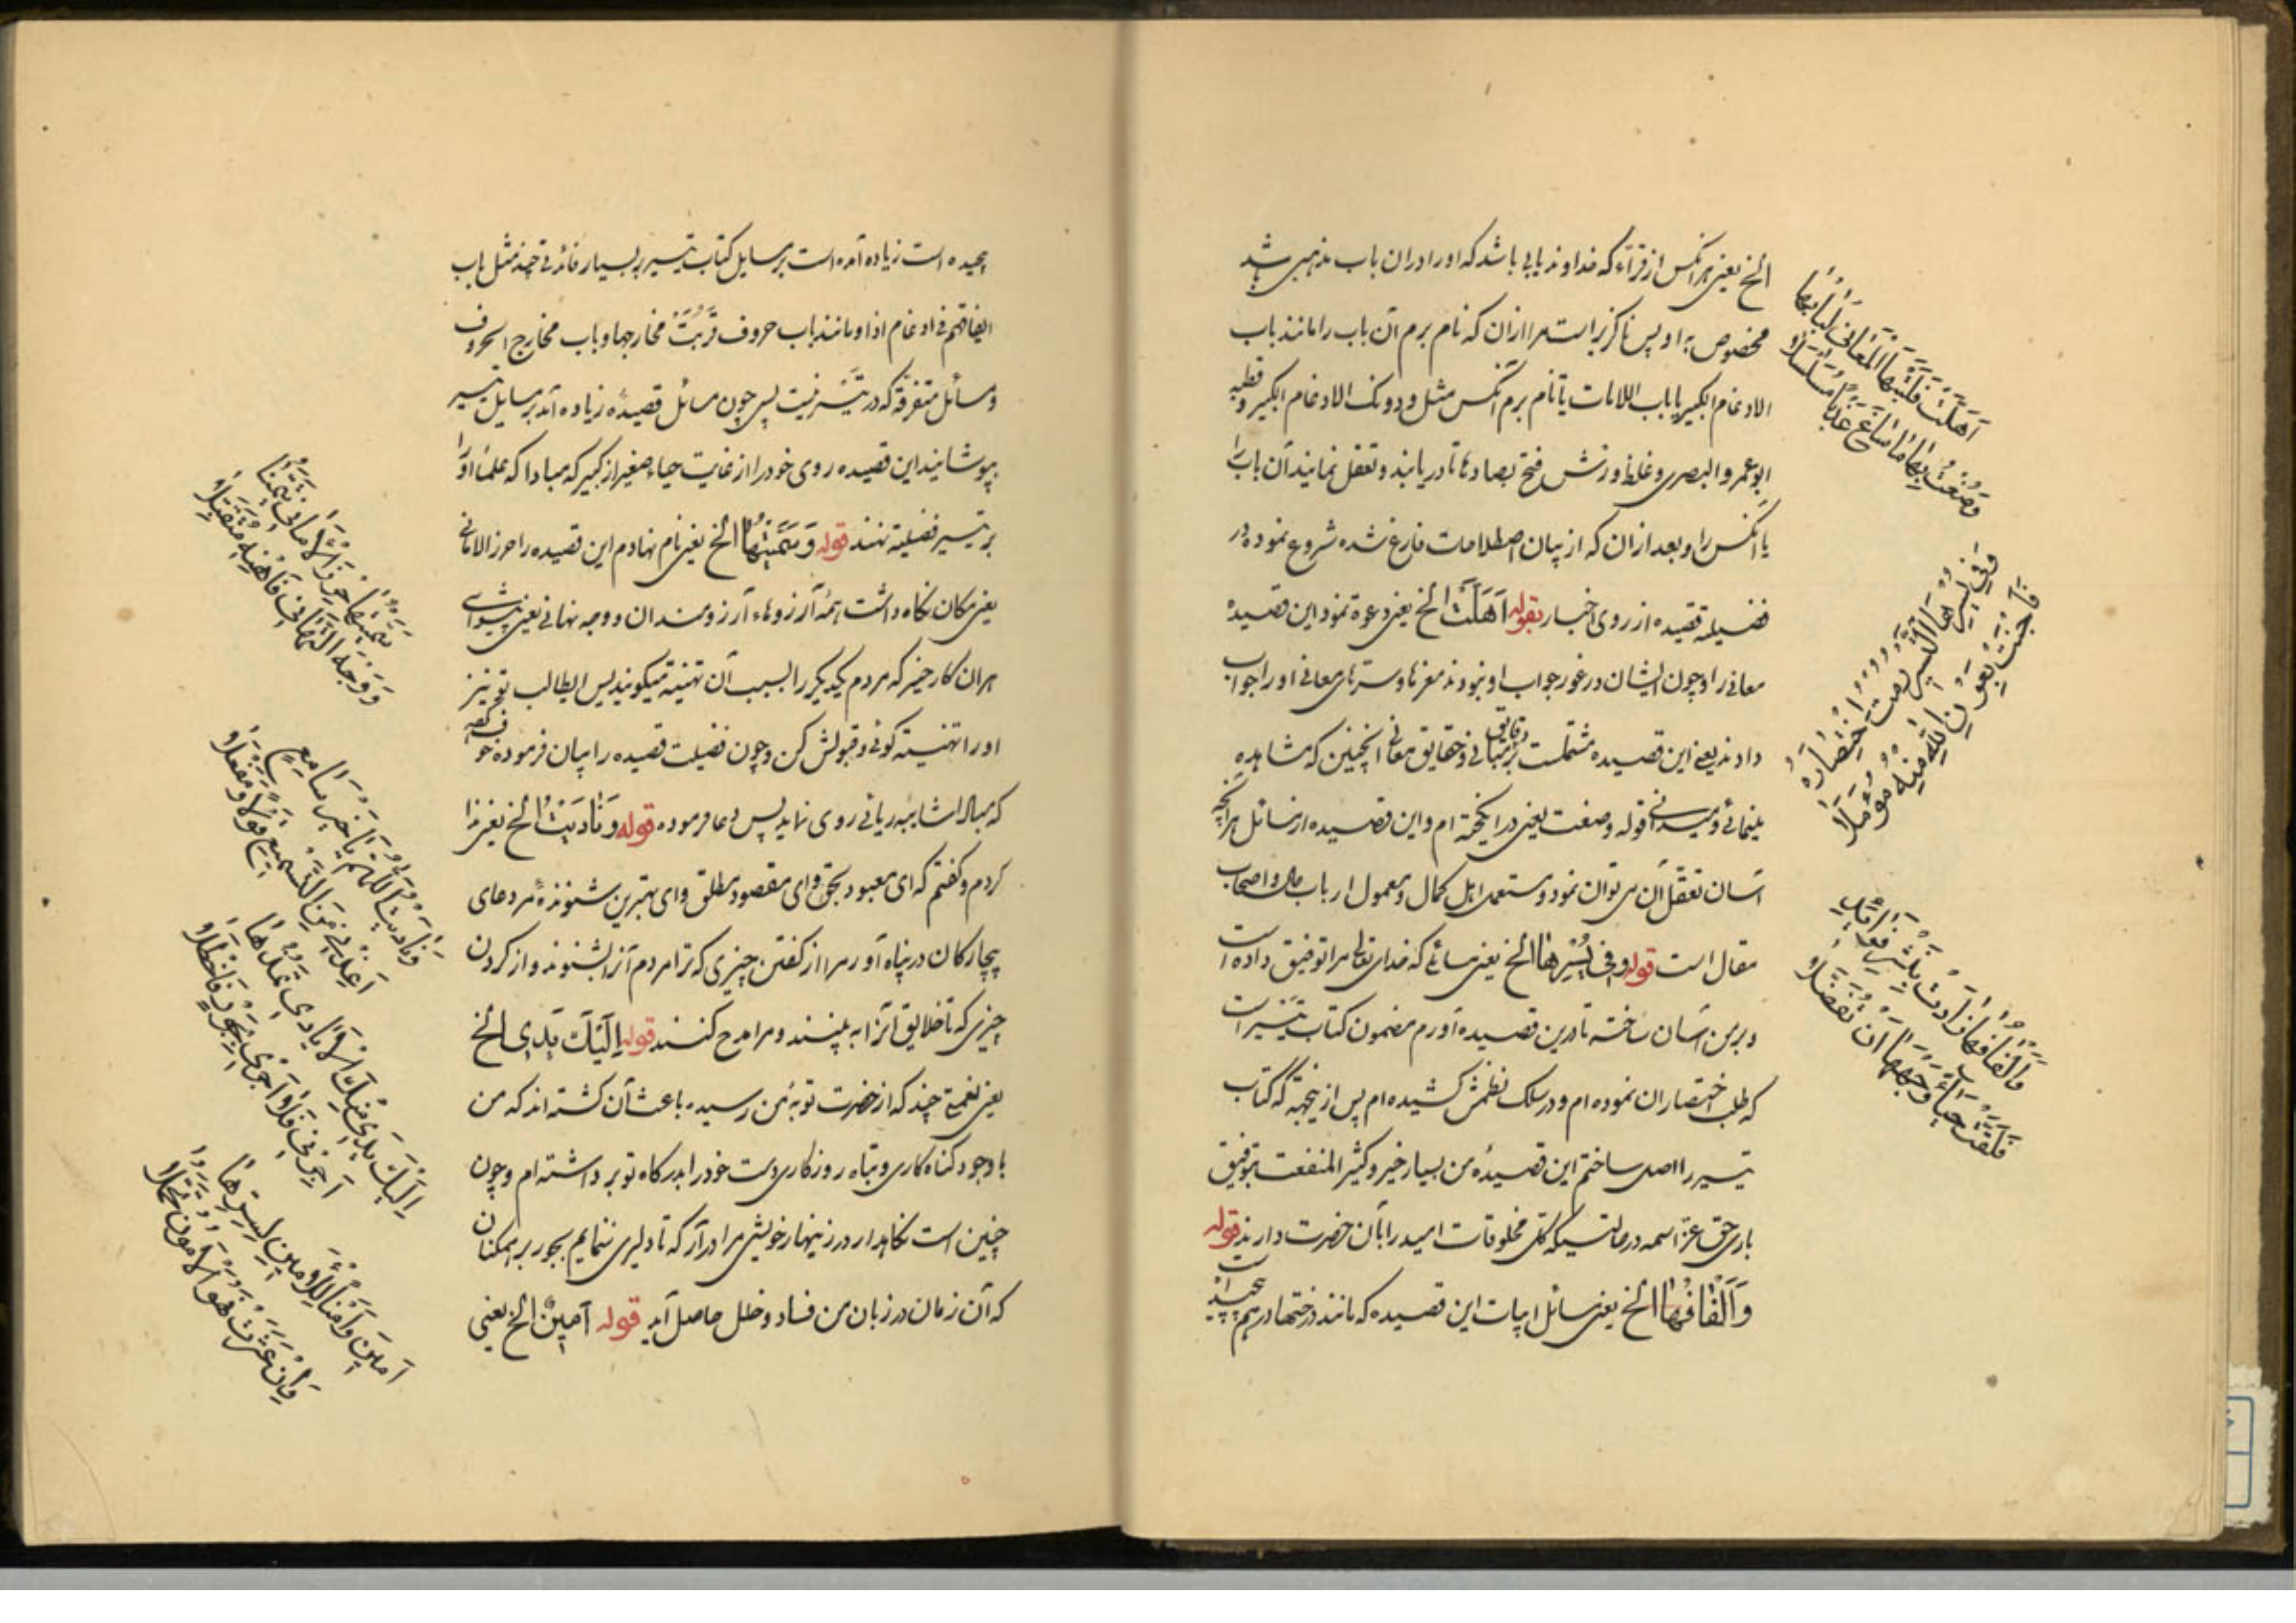 الخ یعنی هر آنکس از قرّاء که خداوند بابی باشد که او را در ان باب مذهبی باشد
مخصوص به او پس ناگزیر است مرا از ان که نام برم آن باب را مانند باب
الادغام الکبیر یا باب اللامات یا نام برم آنکس مثل ودونک الادغام الکبیر وقطبه
ابو عمرو البصری وغلظ ورش فتح بصادها تا دریابند وتعقل نمایند آن باب را
یا آنکس را وبعد از ان که از بیان اصطلاحات فارغ شده شروع نموده در
فضیلة قصیده از روی اخبار بقوله اَهَلَّتْ الخ یعنی دعوة نمود این قصیده
معانی را وچون ایشان در خور جواب او نبودند مغزها وسرهای معانی او را جواب
دادند یعنی این قصیده مشتملست بر دقایق مبانی وحقایق معانی انچنین که مشاهده
مینمائی ومیدانی قوله وصغت یعنی در انگیخته ام واین قصیده از مسائل هر آنچه
آسان تعقل آن می توان نمود ومستعمل اهل کمال ومعمول ارباب حال واصحاب
مقال است قوله وفی یُسْرِهَا الخ یعنی مسائلی که خدای تعالی مرا توفیق داده است
وبر من آسان ساخته تا درین قصیده آورم مضمون کتاب تیسیر است
که طلب اختصار ان نموده ام ودر سلک نظمش کشیده ام پس از نیجهته که کتاب
تیسیر را اصل ساختم این قصیدۀ من بسیار خیر وکثیر المنفعت بتوفیق
باری حق عز اسمه در حالتیکه کل مخلوقات امید را بآن حضرت دارند قوله
وَاَلْفَافُهَا الخ یعنی مسائل ابیات این قصیده که مانند درختها درهم پیچیده است
اَهَلَّتْ فَلَبَّتْهَا الْمَعَانِی لُبَابُهَا
وَصُغْتُ بِهَا مَا سَاغَ عَذْبًا مُسَلْسَلَا
وَفِی یُسْرِهَا التَّیْسِیرُ رُمْتُ اخْتِصَارَهُ
فَاَجْنَتْ بِعَوْنِ اللّٰهِ مِنْهُ مُؤَمَّلَا
وَاَلْفَافُهَا زَادَتْ بِنَشْرِ فَوَائِدٍ
فَلَفَّتْ حَیَاءً وَجْهَهَا اَنْ تُفَضَّلَا
پیچیده است زیاده آمده است بر مسایل کتاب تیسیر بسیار فائدۀ چند مثل باب
اتفاقهم فی ادغام اذ او مانند باب حروف قربت مخارجها وباب مخارج الحروف
ومسائل متفرقه که در تیسیر نیست پس چون مسائل قصیده زیاده آمد بر مسایل تیسیر
بپوشانید این قصیده روی خود را از غایت حیاء صغیر از کبیر که مبادا که علما او را
بر تیسیر فضیلة نهند قوله وَسَمَّیْتُهَا الخ یعنی نام نهادم این قصیده را حرز الامانی
یعنی مکان نگاه داشت همۀ آرزوهاء آرزومندان ووجه نهانی یعنی پیشوای
هر ان کار خیر که مردم یکدیگر را بسبب آن تهنیته میگویند پس ای طالب تو نیز
او را تهنیته گوئی وقبولش کن وچون فضیلت قصیده را بیان فرموده خوف
که مباد اشائبۀ ریائی روی نماید پس دعا فرموده قوله وَنَادَیْتُ الخ یعنی ندا
کردم وگفتم که ای معبود بحق وای مقصود مطلق وای بهترین شنوندۀ مر دعای
بیچارگان در پناه آور مرا از گفتن چیزی که ترا مردم آنرا بشنوند واز کردن
چیزی که تا خلایق آنرا به بینند ومرا مدح کنند قوله اِلَیْكَ یَدِی الخ
یعنی نعمتهٔ چند که از حضرت تو بمن رسیده باعث آن گشته اند که من
با وجود گناه کاری وتباه روزگاری دست خود را بدرگاه تو بر داشته ام وچون
چنین است نگاهدار ودر زینهار خویش مرا درآر که تا دلیری ننمایم بجور بر همکنان
که آن زمان در زبان من فساد وخلل حاصل آید قوله آمِینَ الخ یعنی
وَسَمَّیْتُهَا حِرْزَ الْاَمَانِی تَیَمُّنًا
وَوَجْهَ التَّهَانِی فَاهْنِهِ مُتَقَبِّلَا
وَنَادَیْتُ اللّٰهُمَّ یَا خَیْرَ سَامِعٍ
اَعِذْنِی مِنَ التَّسْمِیعِ قَوْلًا وَمِفْعَلَا
اِلَیْكَ یَدِی مِنْكَ الْاَیَادِی تَمُدُّهَا
اَجِرْنِی فَلَا اَجْرِی بِجَوْرٍ فَاَخْطَلَا
آمِینَ وَاَمْنًا لِلْاَمِینِ بِسِرِّهَا
وَاِنْ عَثَرَتْ فَهْوَ الْاَمُونُ تَحَمُّلَا